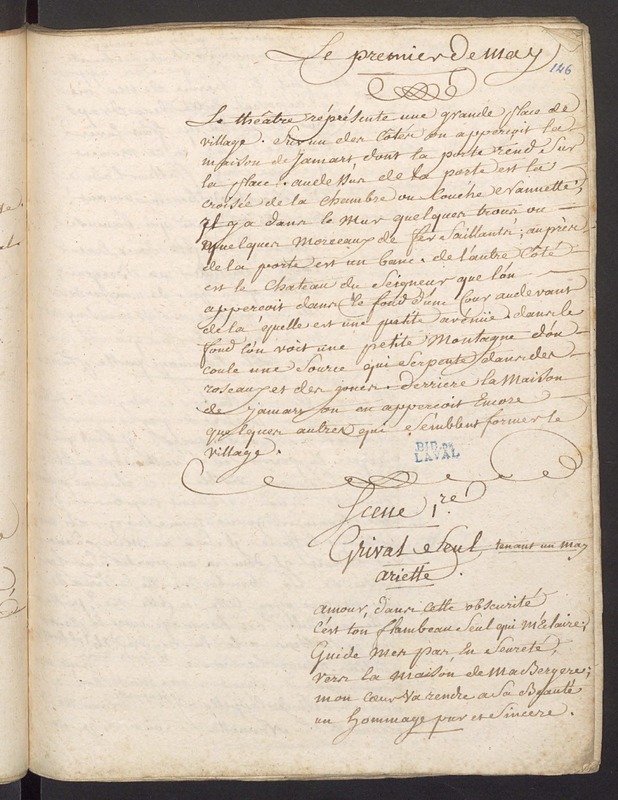 Le premier de may
146
Le théâtre réprésente une grande place de
village. sur un des côtés on apperçoit la
maison de Jamart dont la porte rend sur
la place. audessus de la porte est la
croisée de la chambre ou couche Nannette;
Il y a dans le Mur quelques trous ou
quelques Morceaux de fer Saillants; auprès
de la porte est un banc. de l'autre Côté
est le Chateau du Seigneur que lon
apperçoit dans le fond d'une Cour audevant
de la quelle est une petite avénüe. dans le
fond l'on voit une petite Montagne d'ou
coule une Source qui Serpente dans des
roseaux et des joncs. derriere la Maison
de jamart on en apperçoit Encore
quelques autres qui semblent former le
village.
BIB. DE
LAVAL
Scene 1.re
Grivat Seul tenant un may
ariette.
amour, dans cette obscurité
C'est ton flambeau Seul qui m'Eclaire;
Guide Mes pas En Seureté,
vers la Maison de Ma Bergere;
mon cœur Va rendre a Sa Beauté
un Hommage pur et Sincere.